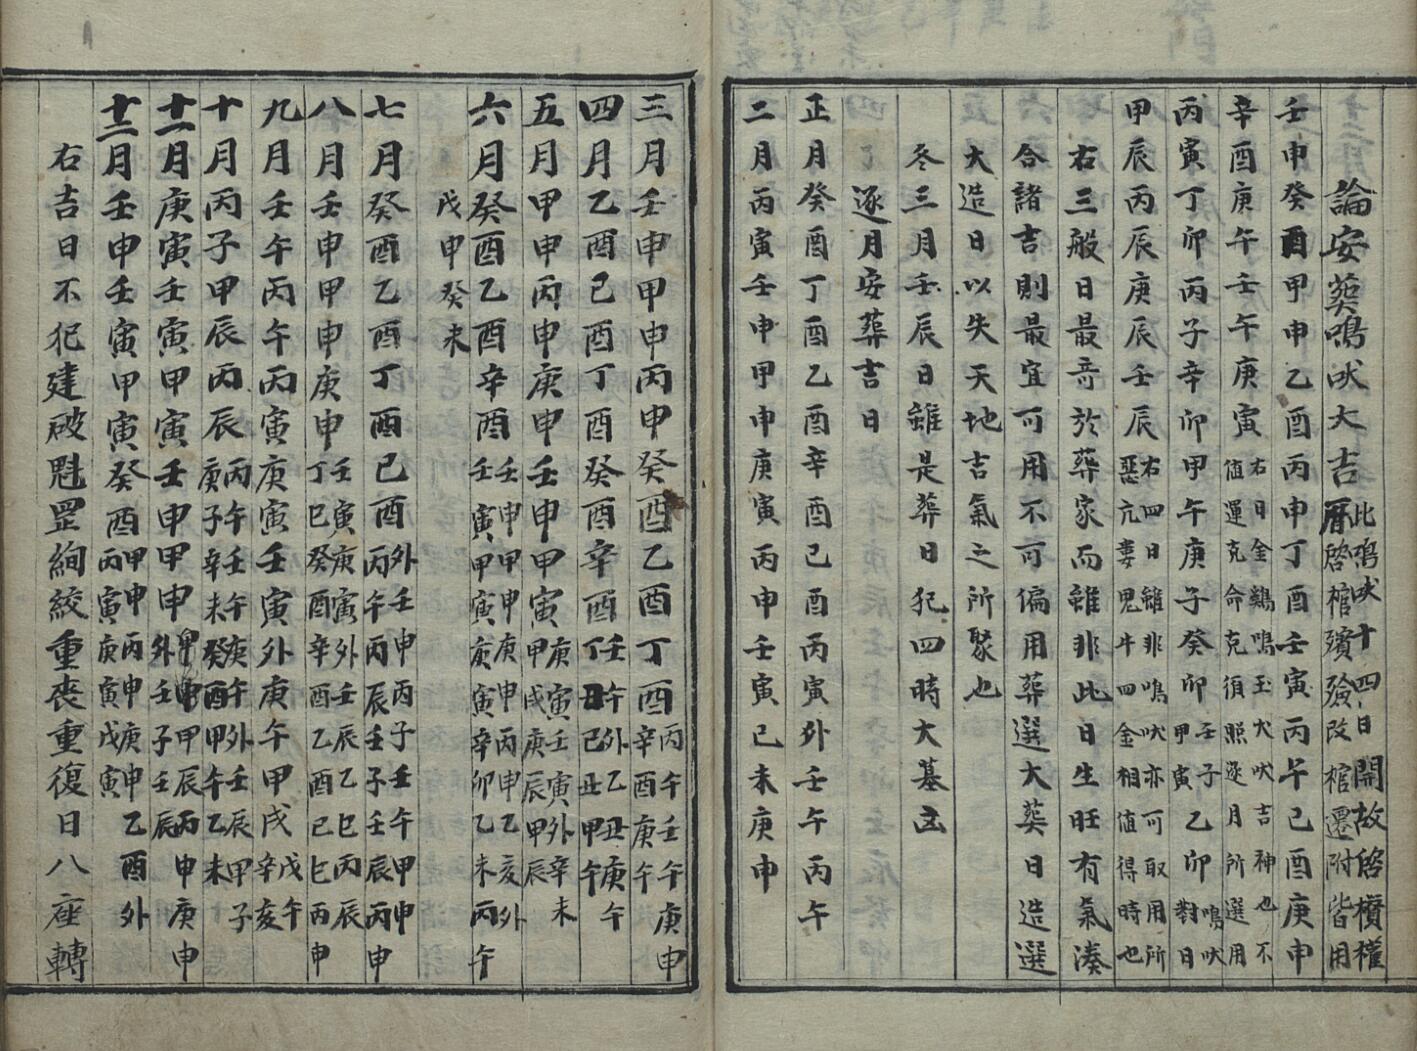 論安葬鳴吠大吉 此鳴吠十四日開故啓欑權
曆啓棺殯殮改棺遷附皆用
壬申癸酉甲申乙酉丙申丁酉壬寅丙午己酉庚申
辛酉庚午壬午庚寅 右日金鷄鳴玉犬吠吉神也不
值運克命克須照逐月所選用
丙寅丁卯丙子辛卯甲午庚子癸卯 壬子乙卯 鳴吠
甲寅 對日
甲辰丙辰庚辰壬辰 右四日雖非鳴吠亦可取用所
惡亢婁鬼牛四金相值得時也
右三般日最竒於葬家而雖非此日生旺有氣湊
合諸吉則最宜可用不可偏用葬選大葬日造選
大造日以失天地吉氣之所聚也
冬三月壬辰日雖是葬日犯四時大墓凶
逐月安葬吉日
正月癸酉丁酉乙酉辛酉己酉丙寅外壬午丙午
二月丙寅壬申甲申庚寅丙申壬寅己未庚申
三月壬申甲申丙申癸酉乙酉丁酉 丙午壬午庚申
辛酉庚午
四月乙酉己酉丁酉癸酉辛酉 壬午外乙丑庚午
丁丑己丑甲午
五月甲申丙申庚申壬申甲寅 庚寅壬寅外辛未
甲戌庚辰甲辰
六月癸酉乙酉辛酉 壬申甲申庚申丙申乙亥外
壬寅甲寅庚寅辛卯乙未丙午
戊申癸未
七月癸酉乙酉丁酉己酉 外壬申丙子壬午甲申
丙午丙辰壬子壬辰丙申
八月壬申甲申庚申 壬寅庚寅外壬辰乙巳丙辰
丁巳癸酉辛酉乙酉己巳丙申
九月壬午丙午丙寅庚寅壬寅外庚午甲戌 戊午
辛亥
十月丙子甲辰丙辰 丙午壬午庚午外壬辰甲子
庚子辛未癸酉甲午乙未
十一月庚寅壬寅甲寅壬申甲申 甲申甲辰丙申庚申
外壬子壬辰
十二月壬申壬寅甲寅癸酉 甲申丙申庚申乙酉外
丙寅庚寅戊寅
右吉日不犯建破魁罡絢絞重喪重復日八座轉